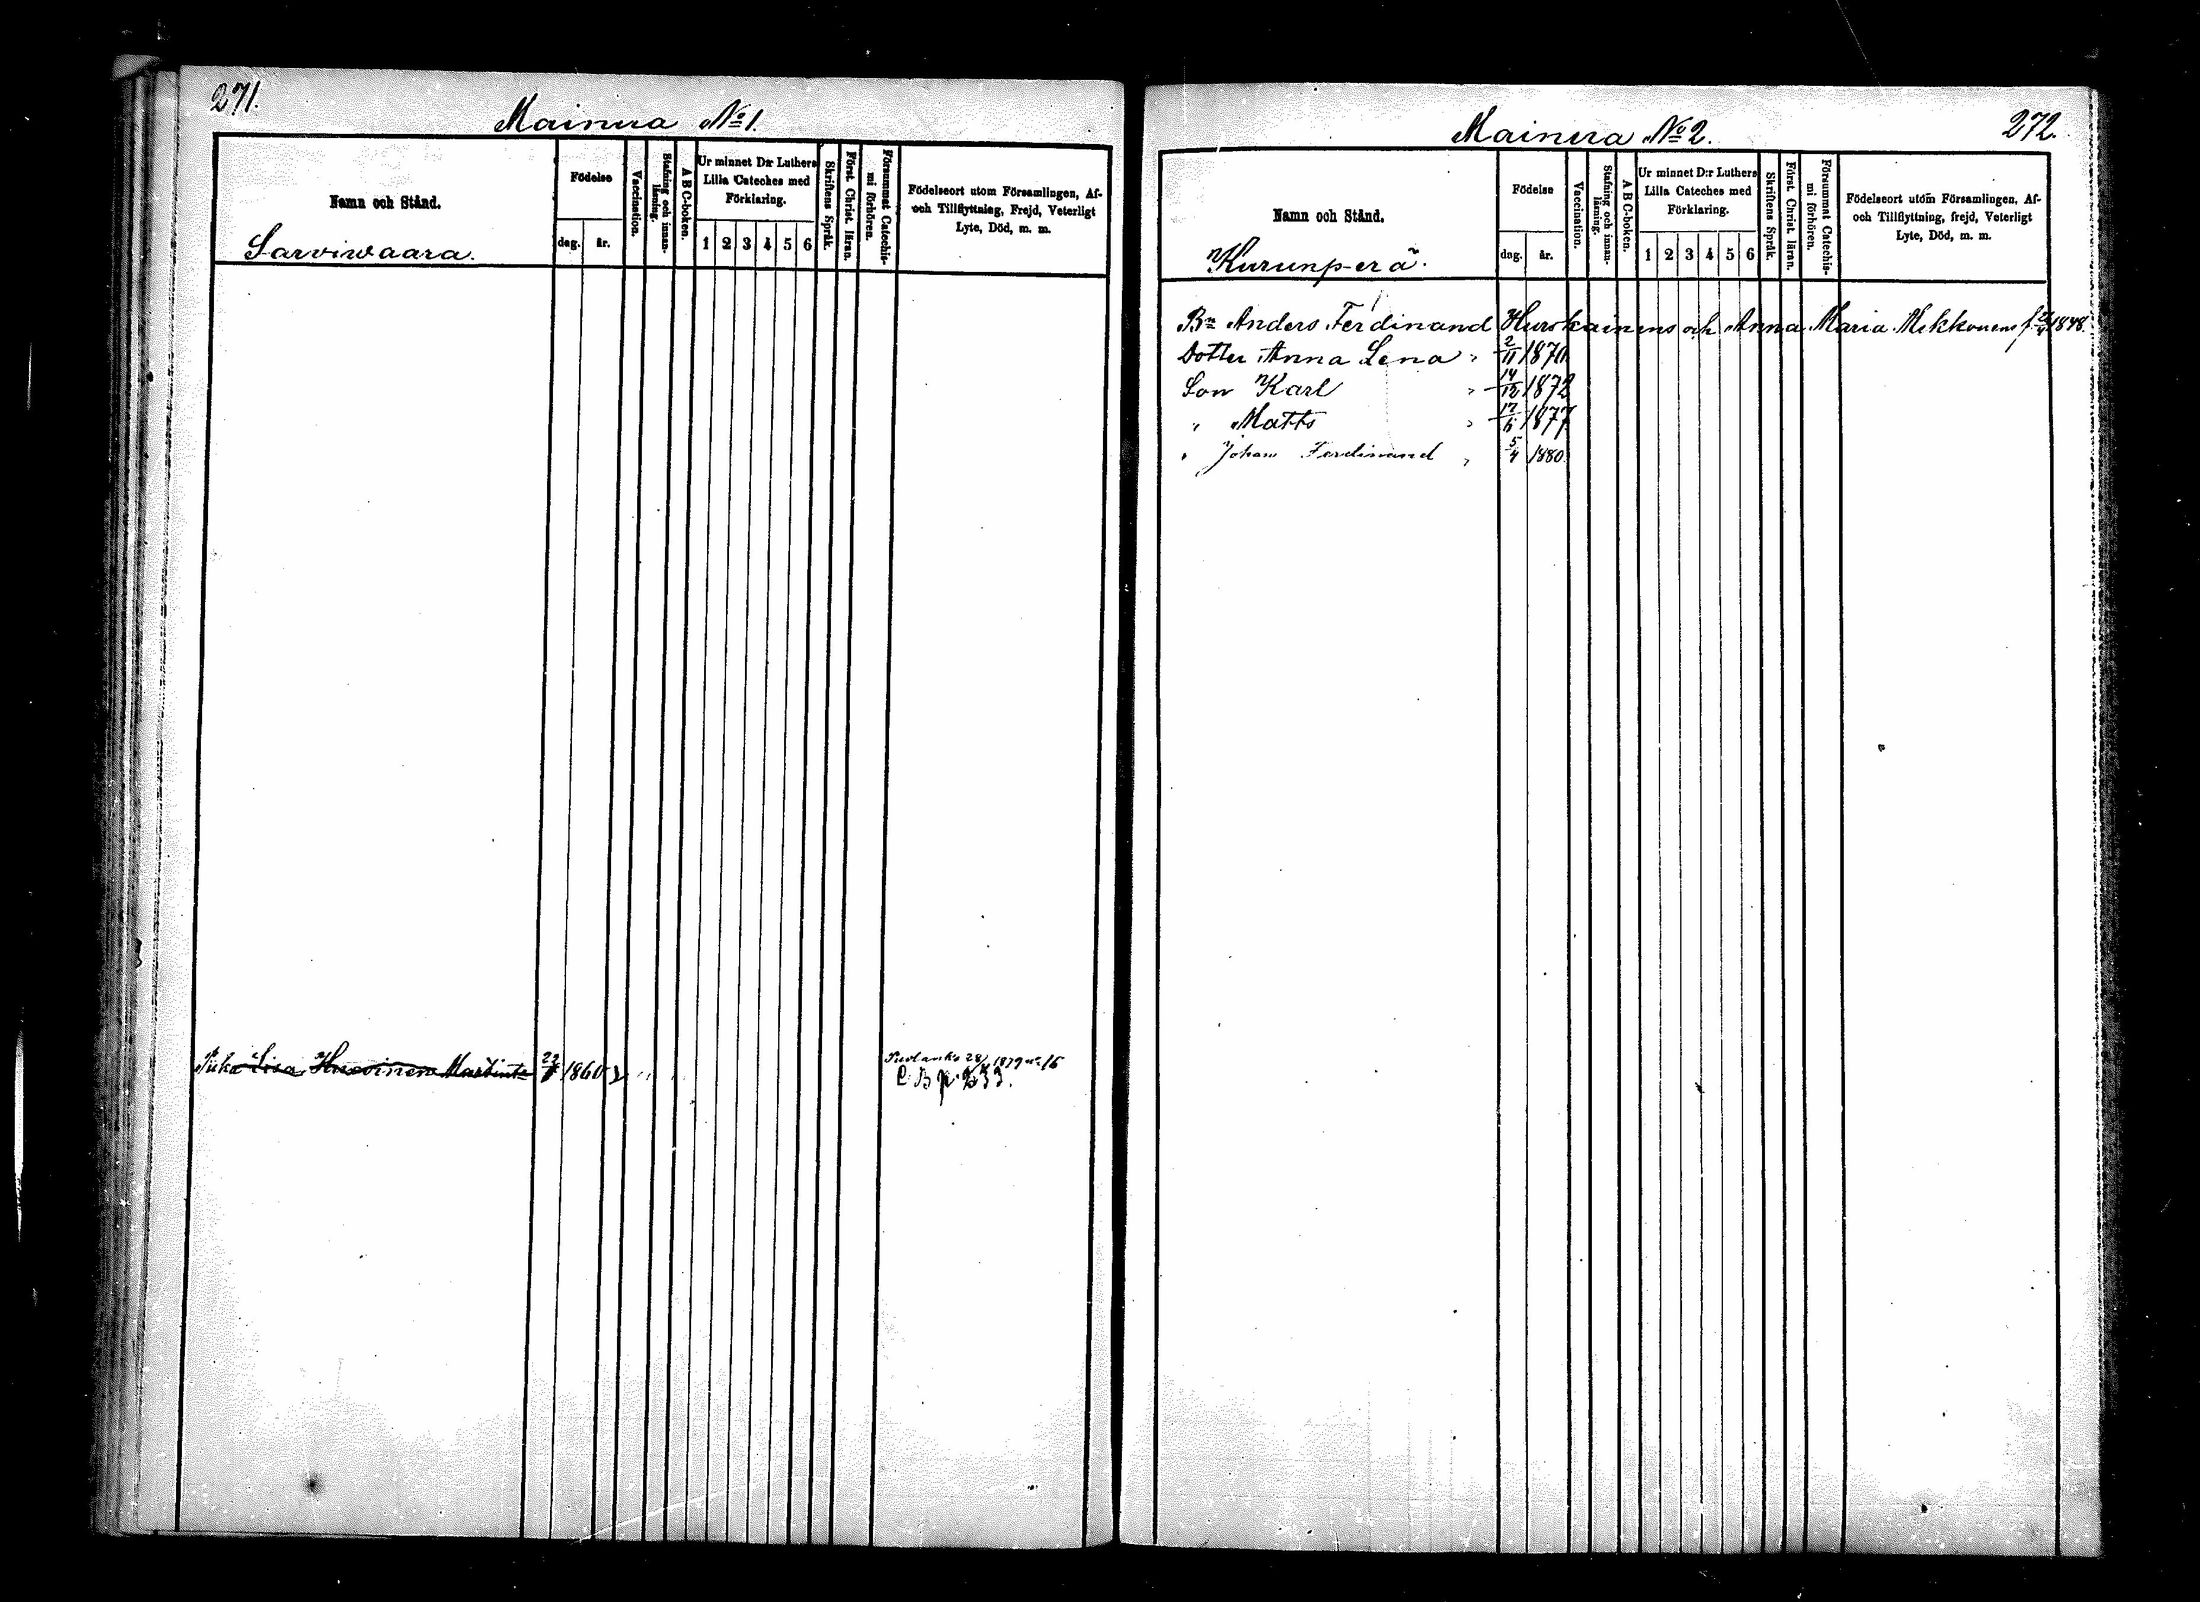 271.
Mainua No 1.
Namn och Stånd.
Sarviwaara.
Födelse
dag.
år.
Vaccination.
Stafning och innan-
läsning.
A B C-boken.
Ur minnet D:r Luthers
Lilla Cateches med
Förklaring.
1 2 3 4 5 6
Skriftens Språk.
Först. Christ. läran.
Försummat Catechis-
mi förhören.
Födelseort utom Församlingen, Af-
och Tillflyttning, Frejd, Veterligt
Lyte, Död, m. m.
Lisa Huovinen 1860
28/ 1879 No 16
C B p. 233.
Mainua No 2.
272.
Namn och Stånd.
Kurunperä.
Födelse
dag.
år.
Vaccination.
Stafning och innan-
läsning.
A B C-boken.
Ur minnet D:r Luthers
Lilla Cateches med
Förklaring.
1 2 3 4 5 6
Skriftens Språk.
Först. Christ. läran.
Försummat Catechis-
mi förhören.
Födelseort utom Församlingen, Af-
och Tillflyttning, frejd, Veterligt
Lyte, Död, m. m.
Bn Anders Ferdinand Hurskainens och Anna Maria Mekkonens f. 1848.
Dotter Anna Lena " 2/11 1870
Son Karl " 14/12 1872
" Matts " 17/6 1877
" Johan Ferdinand " 5/4 1880